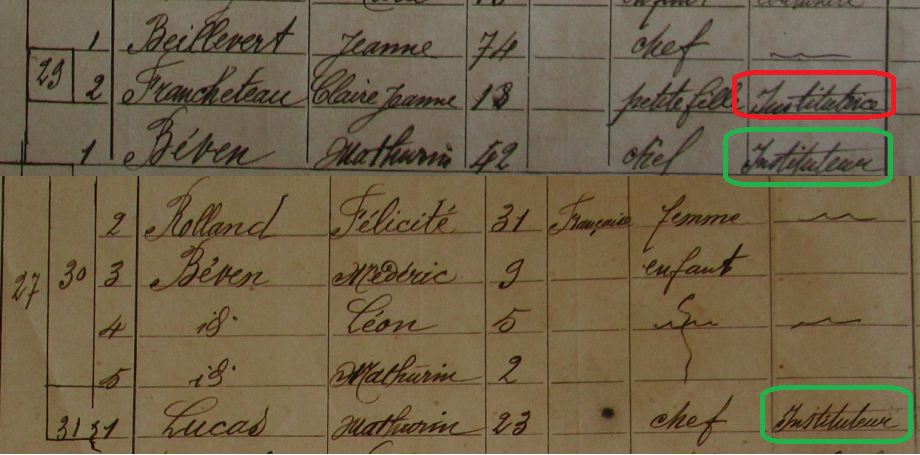 1 Beillevert Jeanne 74 chef
29 2 Francheteau Claire Jeanne 18 petite fille Institutrice
1 Béven Mathurin 42 chef Instituteur
2 Rolland Félicité 31 Française femme
27 30 3 Béven Médéric 9 enfant
4 id. Léon 5
5 id. Mathurin 2
31 1 Lucas Mathurin 23 chef Instituteur